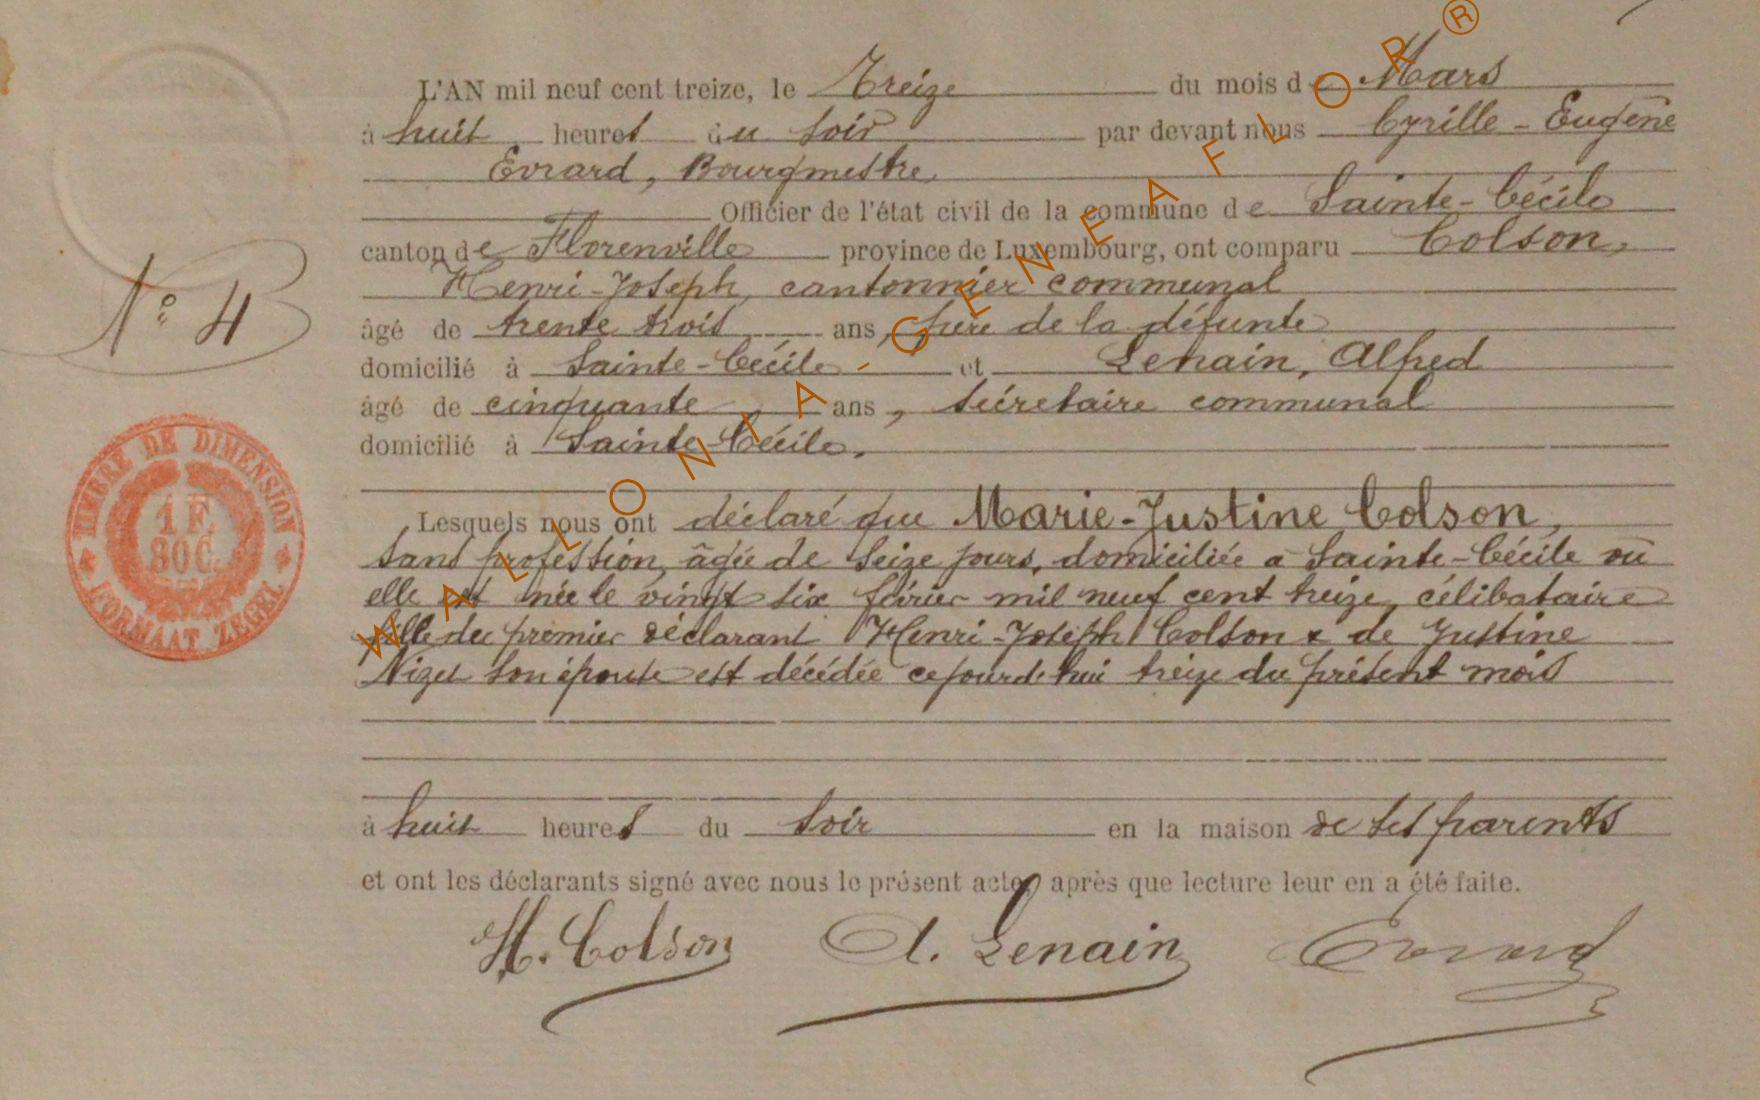 L'AN mil neuf cent treize, le Treize du mois de Mars
à huit heures du soir par devant nous Cyrille-Eugène
Evrard, Bourgmestre,
Officier de l'état civil de la commune de Sainte-Cécile
canton de Florenville province de Luxembourg, ont comparu Colson,
Henri-Joseph, cantonnier communal
âgé de trente trois ans, père de la défunte
domicilié à Sainte-Cécile et Lenain, Alfred
âgé de cinquante ans, secrétaire communal
domicilié à Sainte-Cécile.
Lesquels nous ont déclaré que Marie-Justine Colson,
sans profession, âgée de seize jours, domiciliée à Sainte-Cécile où
elle est née le vingt six février mil neuf cent treize, célibataire
fille du premier déclarant Henri-Joseph Colson & de Justine
Nizet son épouse est décédée cejourd'hui treize du présent mois
à huit heures du soir en la maison de ses parents
et ont les déclarants signé avec nous le présent acte, après que lecture leur en a été faite.
H. Colson A. Lenain Evrard
N° 4
TIMBRE DE DIMENSION
1 F.
80 C.
FORMAAT ZEGEL
WALLONIA-GENEAFLOR®